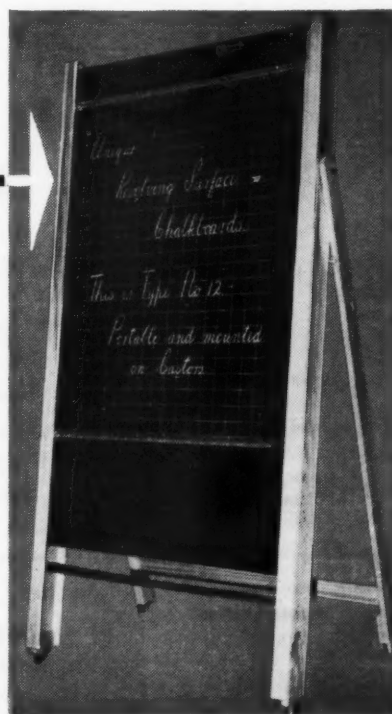 Unique
Revolving Surface
Chalkboards
This is Type No 12 -
Portable and mounted
on Castors